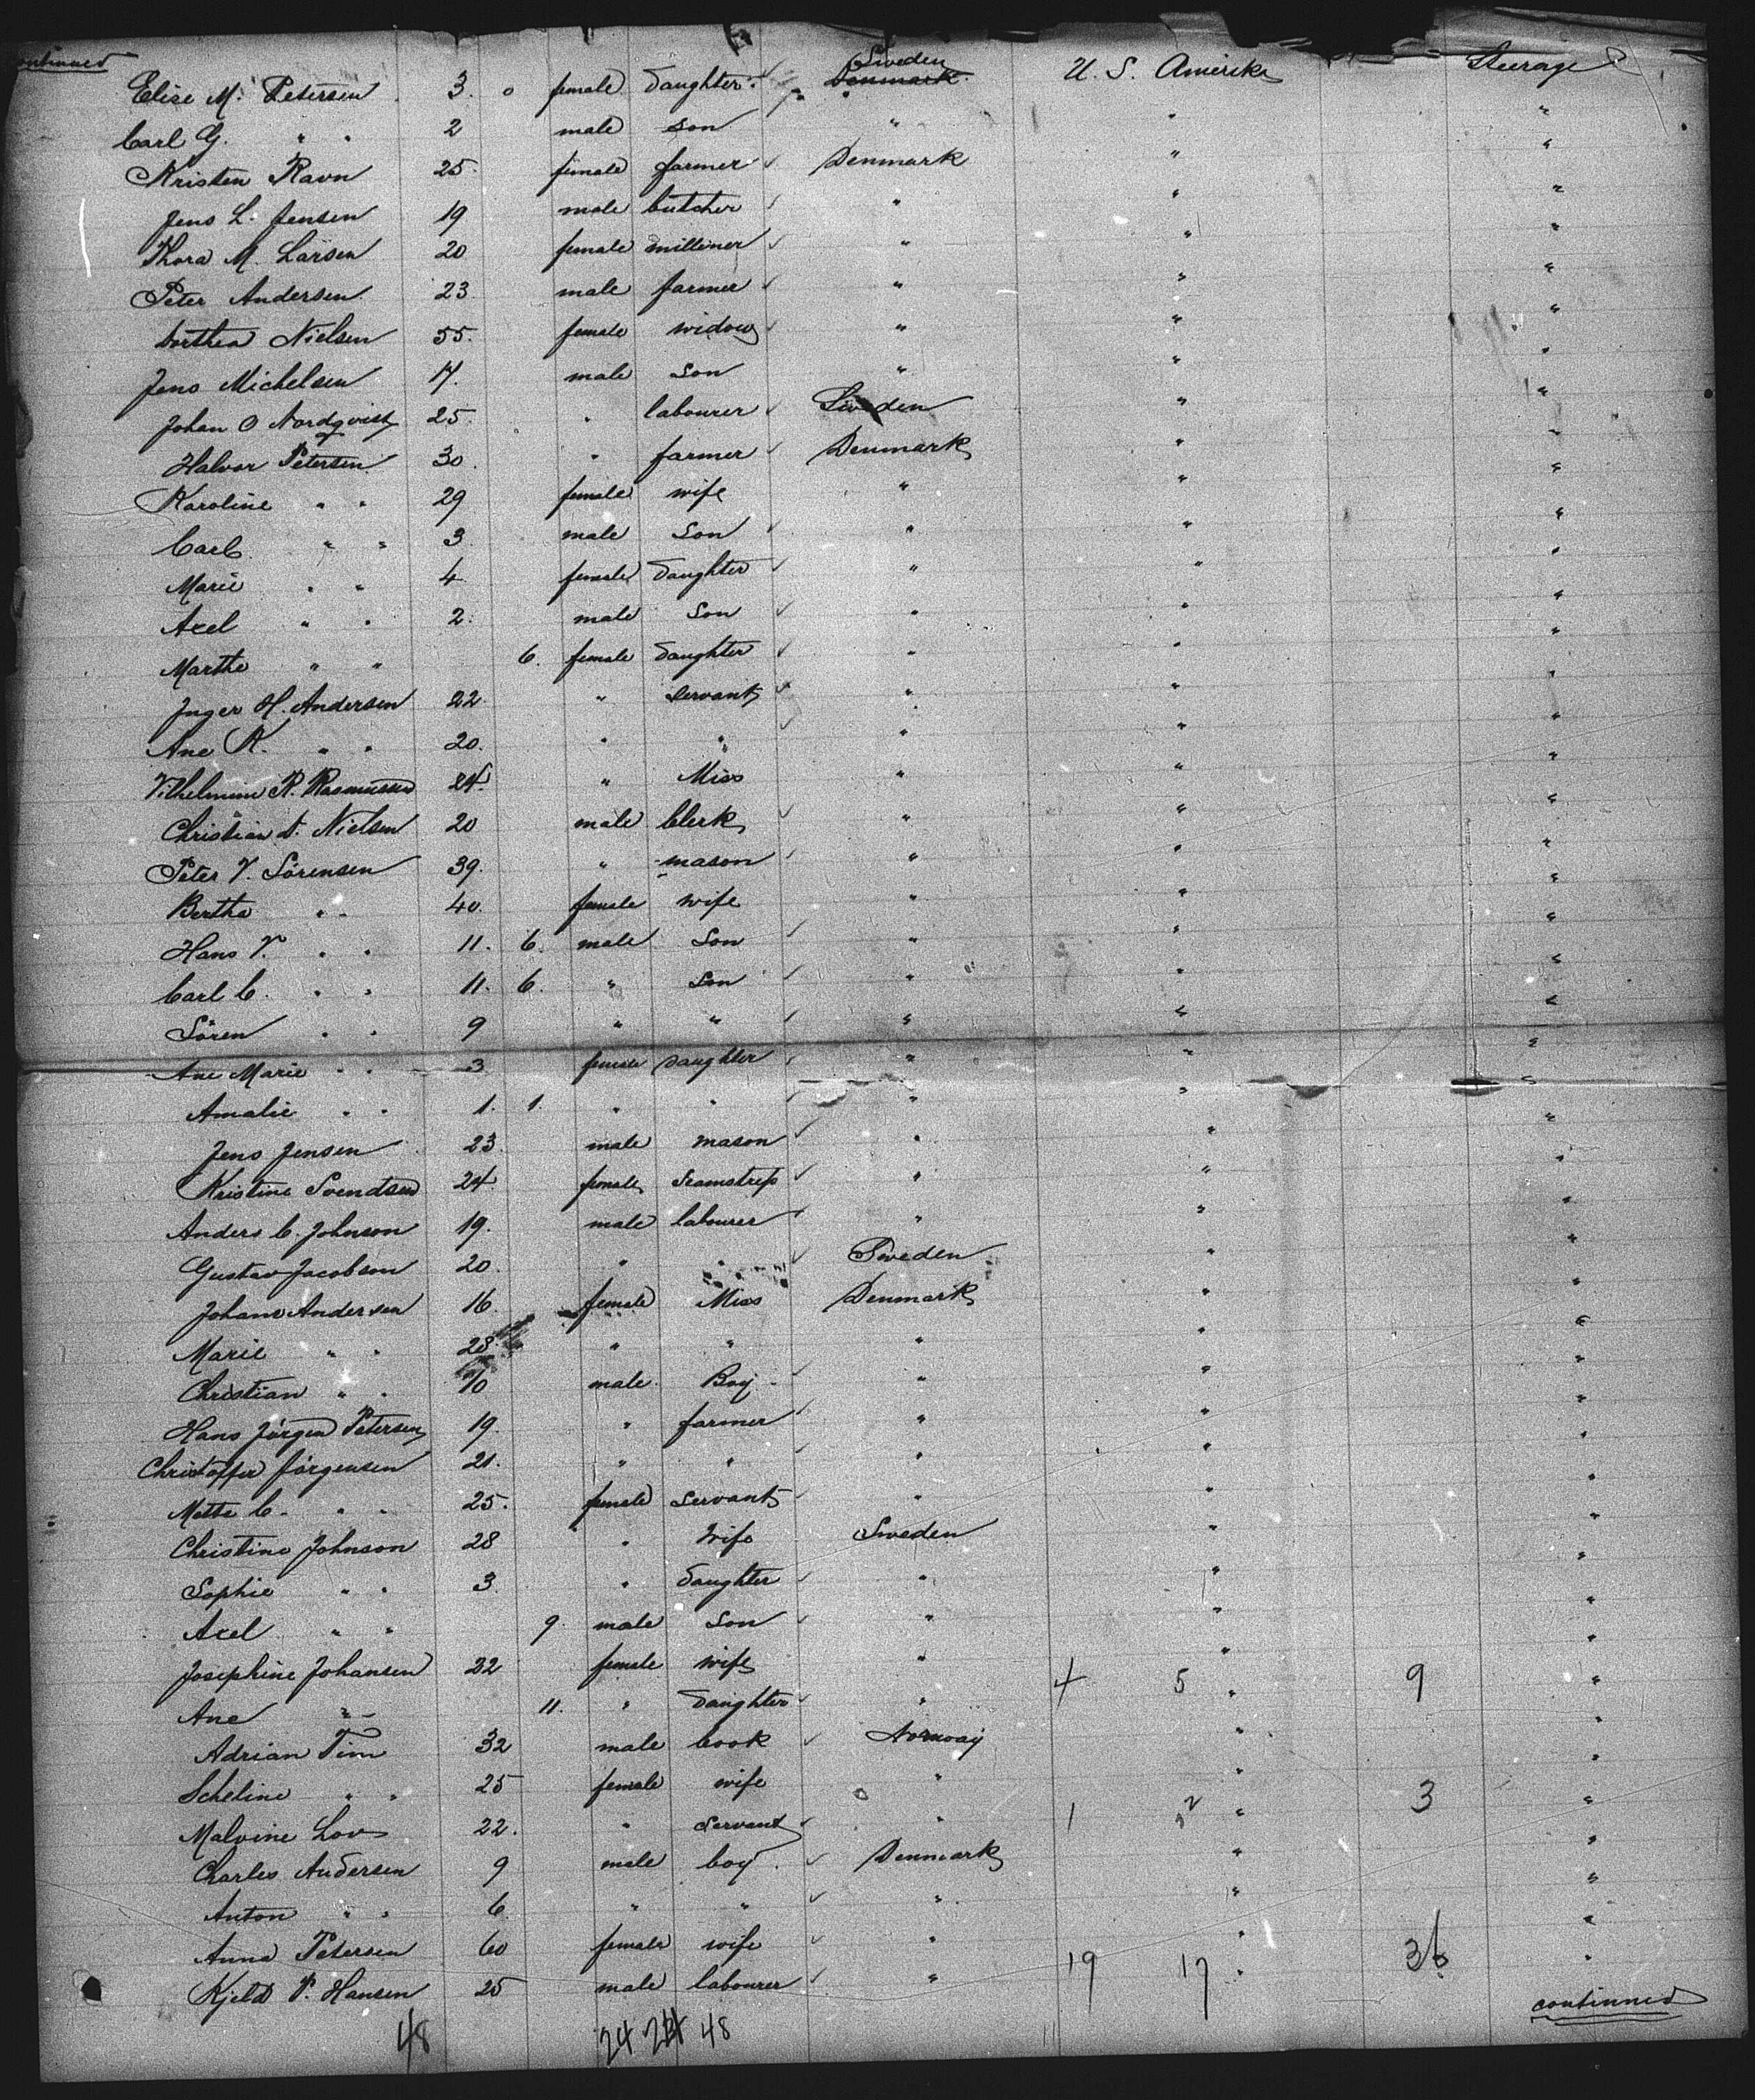 continued
Elise M. Petersen 3. 0 female daughter Sweden Denmark U. S. Amerika Steerage
Carl G. " " 2 male son " " "
Kristen Ravn 25. female farmer Denmark " "
Jens L. Jensen 19 male butcher " " "
Thora M. Larsen 20 female milliner " " "
Peter Andersen 23 male farmer " " "
Dorthea Nielsen 55. female widow " " "
Jens Michelsen 17. male son " " "
Johan O Nordqvist 25. " labourer Sweden " "
Halvor Petersen 30. " farmer Denmark " "
Karoline " " 29 female wife " " "
Carl " " 3 male son " " "
Marie " " 4 female daughter " " "
Axel " " 2. male son " " "
Marthe " " 6. female daughter " " "
Inger H. Andersen 22. " servant " " "
Ane K. " " 20. " " " " "
Vilhelmine R. Rasmussen 24. " Miss " " "
Christian A. Nielsen 20 male Clerk " " "
Peter V. Sörensen 39. " mason " " "
Berthe " " 40. female wife " " "
Hans V. " " 11. 6. male Son " " "
Carl C. " " 11. 6. " Son " " "
Sören " " 9 " " " " "
Ane Marie " " 3 female daughter " " "
Amalie " " 1. 1. " " " " "
Jens Jensen 23. male mason " " "
Kristine Svendsen 24. female Seamstress " " "
Anders C. Johnson 19. male labourer " " "
Gustav Jacobson 20. " " Sweden " "
Johane Andersen 16. female Miss Denmark " "
Marie " " 28. " " " " "
Christian " " 10 male Boy " " "
Hans Jörgen Petersen 19. " farmer " " "
Christoffer Jörgensen 21. " " " " "
Mette C. " " 25. female servant " " "
Christine Johnson 28 " Wife Sweden " "
Sophie " " 3. " daughter " " "
Axel " " 9. male son " " "
Josephine Johansen 22 female wife " " "
Ane " " 11. " daughter " 4 5 " 9 "
Adrian Tim 32 male Cook Norway " "
Scheline " " 25 female wife " " "
Malvine Lov 22. " servant " 1 2 " 3 "
Charles Andersen 9 male boy Denmark " "
Anton " " 6. " " " " "
Anna Petersen 60 female wife " " "
Kjeld P. Hansen 25 male labourer " 19 17 " 36 "
continued
48 24 24 48